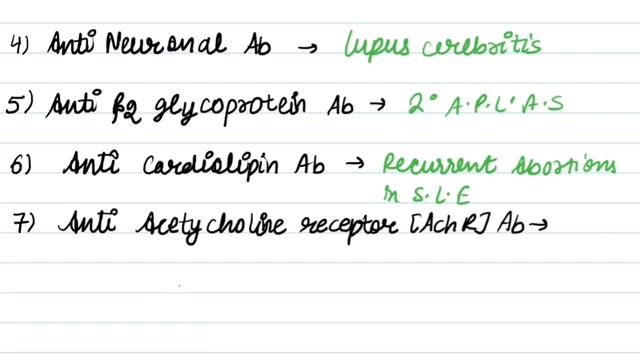 4) Anti Neuronal Ab → Lupus cerebritis
5) Anti β2 glycoprotein Ab → 2° A.P.L.A.S
6) Anti Cardiolipin Ab → Recurrent Abortions
in S.L.E
7) Anti Acetycholine receptor [AchR] Ab →